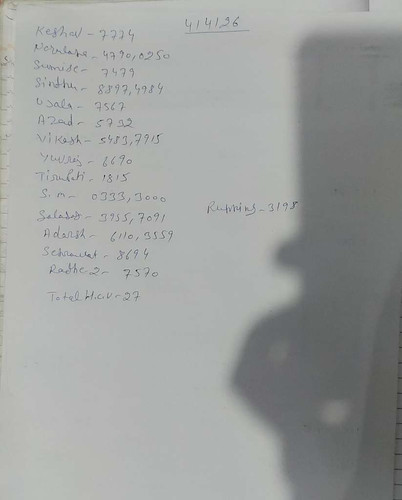 4/4/26
Keshav - 7774
- 4790,0250
- 7479
Sindhu - 8897,4984
Usala - 7567
Azad - 5732
Vikash - 5483,7915
Yuvraj - 6690
Tirupati - 1815
S.m - 0333,3000
- 3955,7091
Running - 3198
Adarsh - 6110,3559
Sehrawat - 8694
Radhe 2 - 7570
Total H.a.v - 27